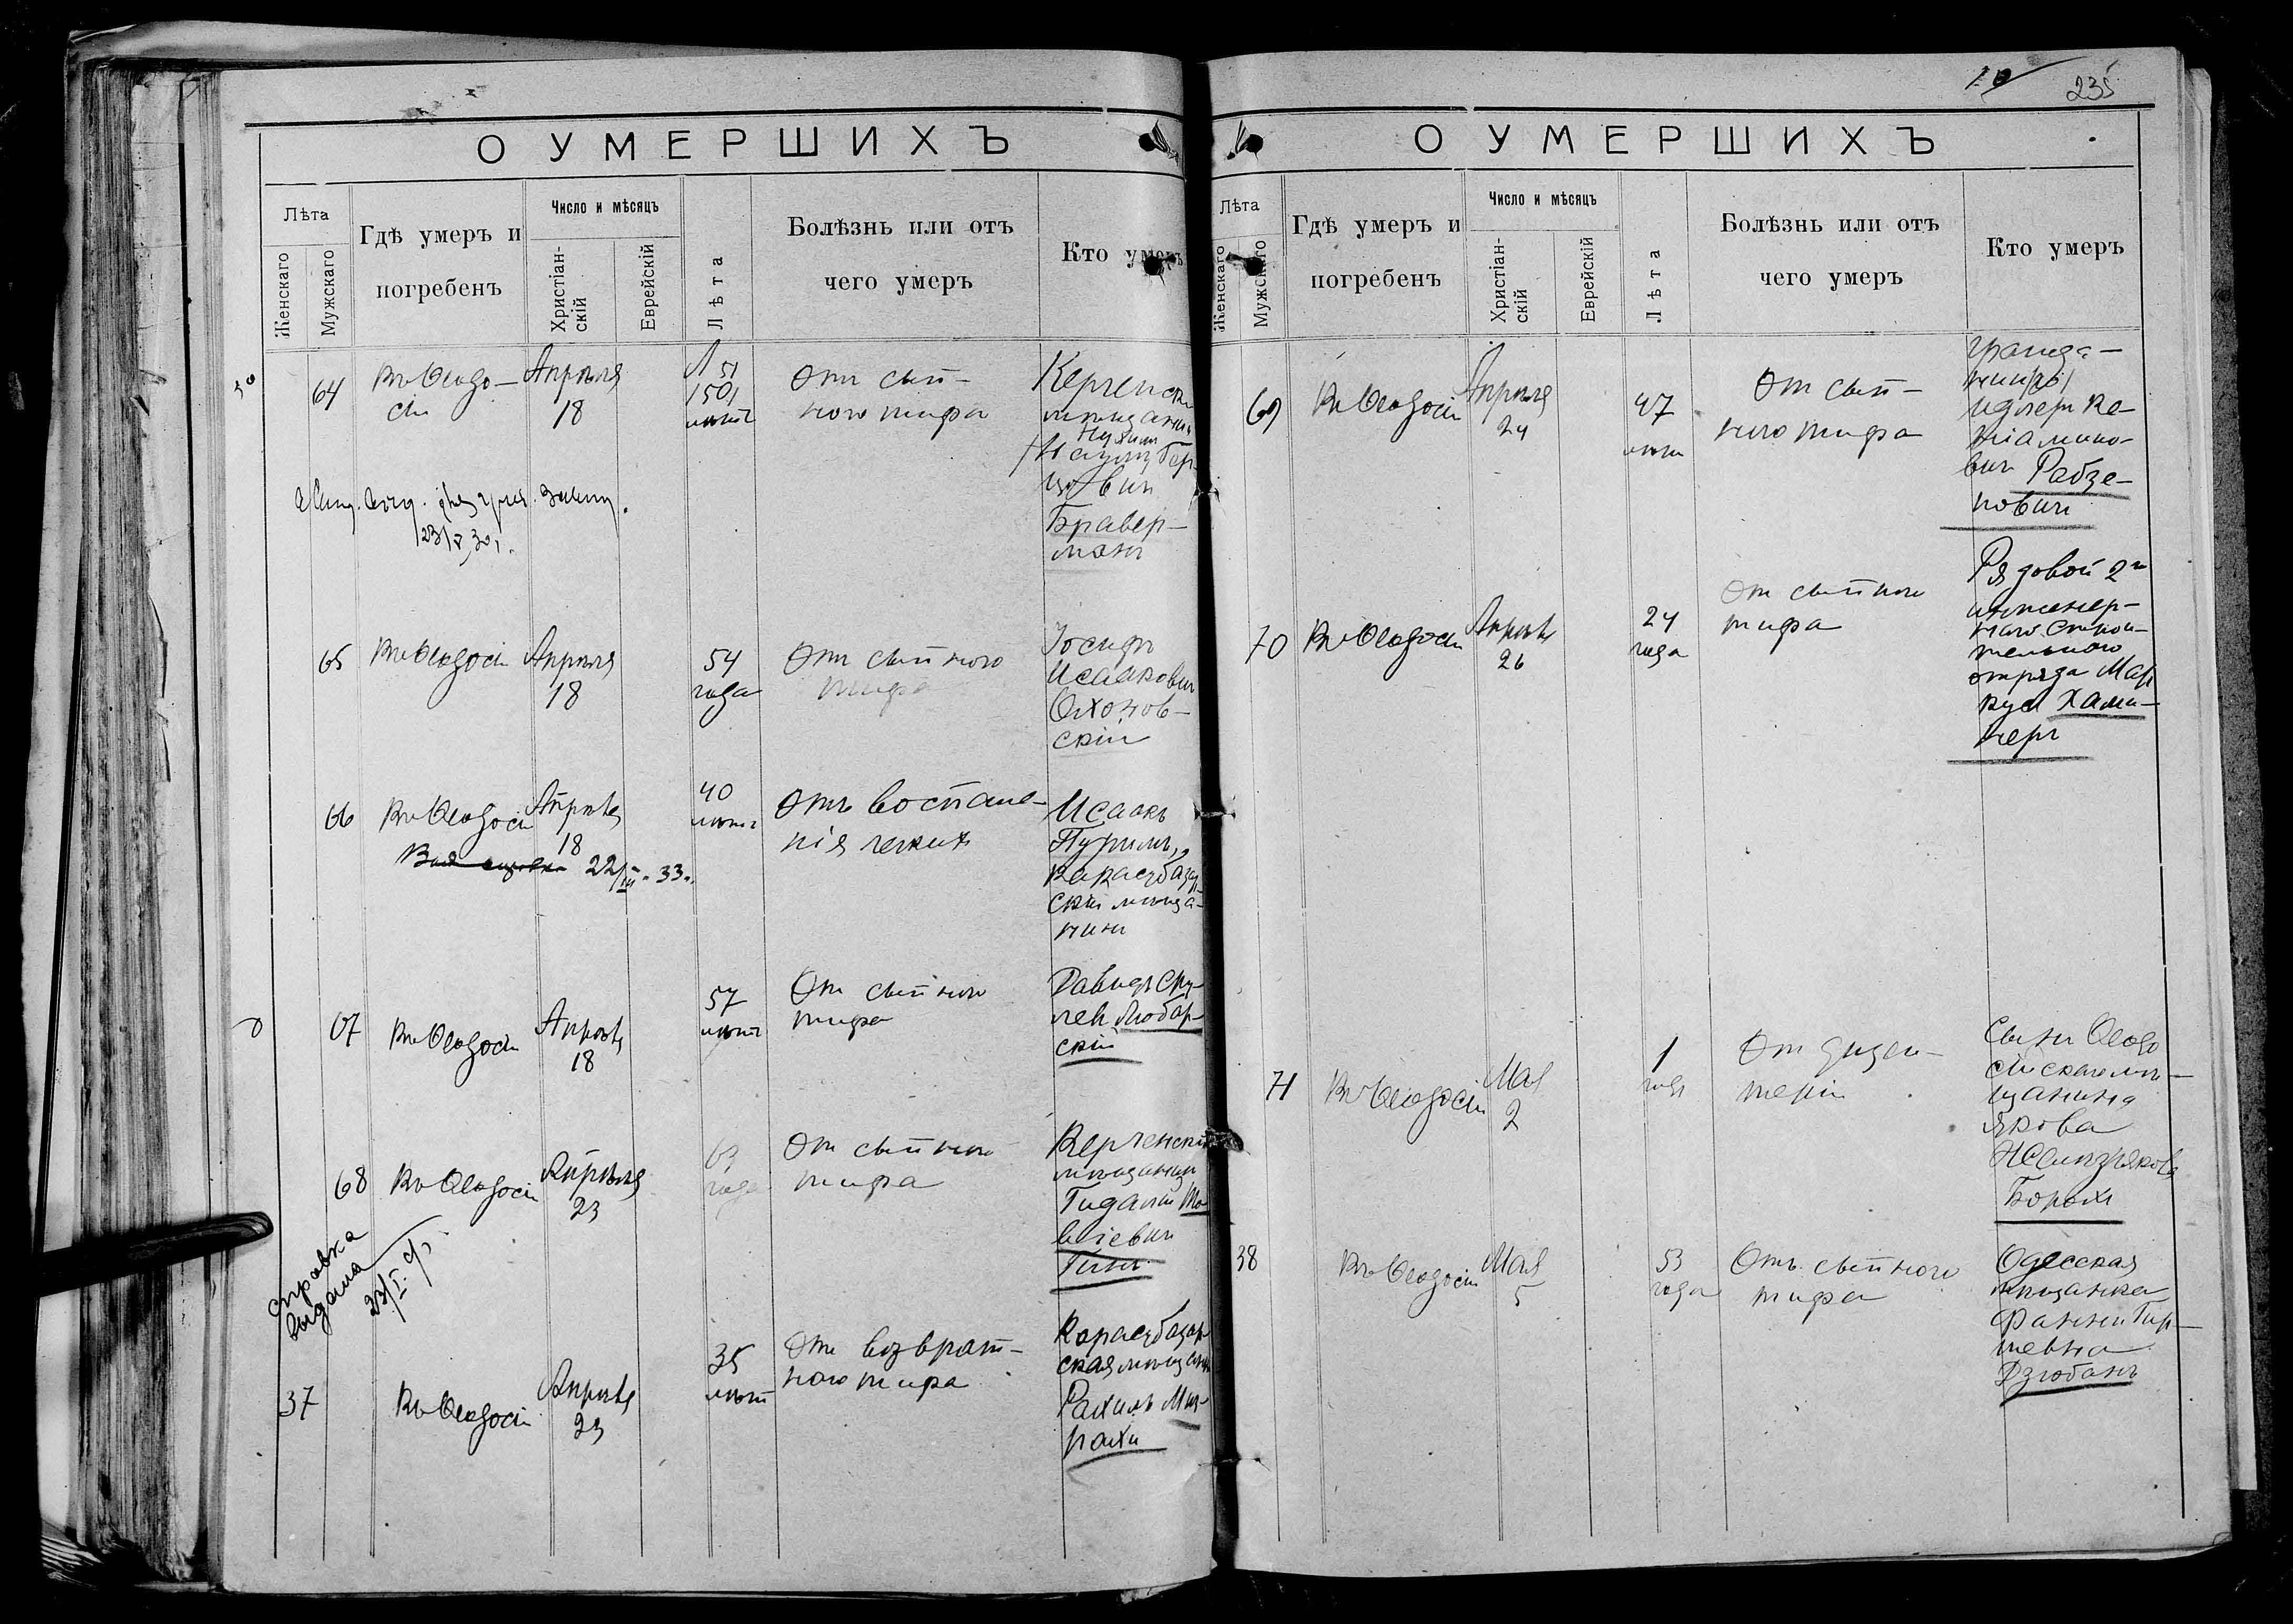 О УМЕРШИХЪ
Лѣта
Женскаго
Мужскаго
Гдѣ умеръ и
погребенъ
Число и мѣсяцъ
Христіан-
скій
Еврейскій
Лѣта
Болѣзнь или отъ
чего умеръ
Кто умеръ
64
Въ Ѳеодо-
сіи
Апрѣля
18
51
лѣтъ
Отъ сып-
ного тифа
Керченскій
мѣщанинъ
Нухим
Бравер-
манъ
65
Въ Ѳеодосіи
Апрѣля
18
54
года
Отъ сыпного
тифа
Іосифъ
Исааковичъ
Олхонов-
скій
66
Въ Ѳеодосіи
Апрѣля
18
22/III. 33 г.
40
лѣтъ
Отъ воспале-
нія легкихъ
Исаакъ
Пуримъ,
Карасубазар-
скій мѣща-
нинъ
67
Въ Ѳеодосіи
Апрѣля
18
57
лѣтъ
Отъ сыпного
тифа
Давидъ Сру-
лев. Любар-
скій
68
Въ Ѳеодосіи
Апрѣля
23
63
года
Отъ сыпного
тифа
Керченскій
мѣщанинъ
Гидалій
справка
выдана
37
Въ Ѳеодосіи
Апрѣля
23
35
лѣтъ
Отъ возврат-
ного тифа
Карасубазар-
ская мѣщанка
Рахиль Миз-
рахи
235
О УМЕРШИХЪ
Лѣта
Женскаго
Мужскаго
Гдѣ умеръ и
погребенъ
Число и мѣсяцъ
Христіан-
скій
Еврейскій
Лѣта
Болѣзнь или отъ
чего умеръ
Кто умеръ
69
Въ Ѳеодосіи
Апрѣля
24
47
лѣтъ
Отъ сып-
ного тифа
гражда-
нинъ
Идлеръ Ве-
ніамино-
вичъ Рабзе-
новичъ
70
Въ Ѳеодосіи
Апрѣля
26
24
года
Отъ сыпного
тифа
Рядовой 2го
инженер-
наго строи-
тельного
отряда Мар-
кусъ Хами-
неръ
71
Въ Ѳеодосіи
Мая
2
1
года
Отъ дизен-
теріи
Сынъ Ѳеодо
сійскаго мѣ-
щанина
Якова
Борохъ
38
Въ Ѳеодосіи
Мая
5
53
года
Отъ сыпного
тифа
Одесская
мѣщанка
Фанни Гир-
шевна
Дзюбанъ